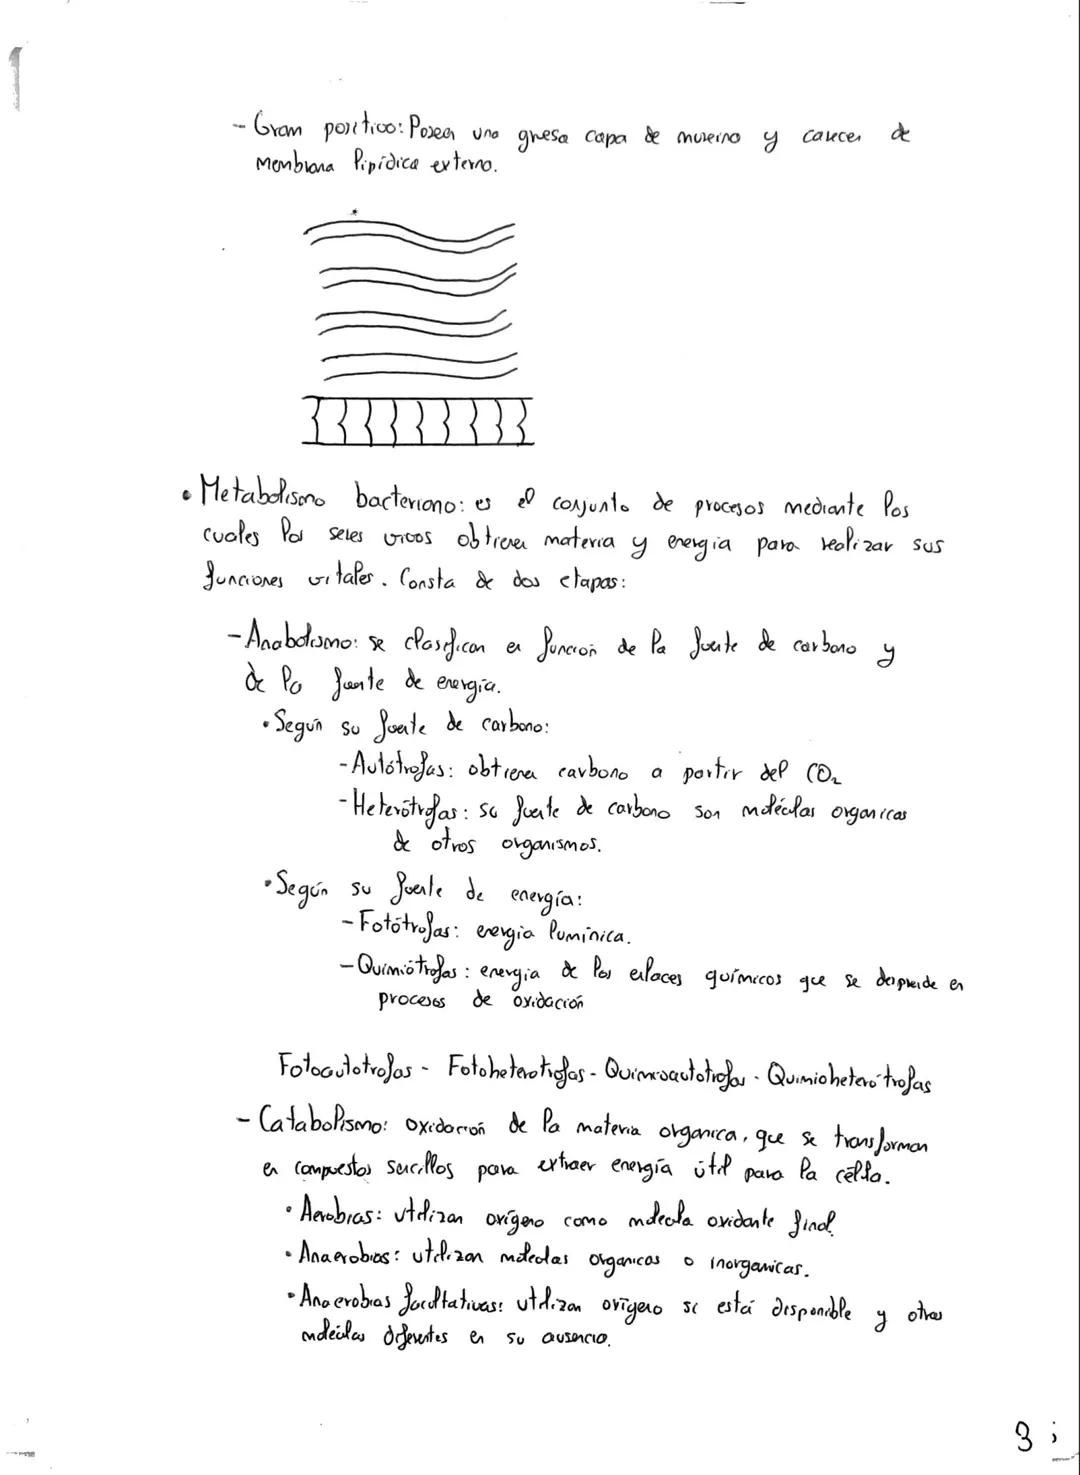 - Gram positivo: Poseen una gruesa capa de mureina y carecen de
membrana lipídica externa.
• Metabolismo bacteriano: es el conjunto de procesos mediante los
cuales los seres vivos obtienen materia y energía para realizar sus
funciones vitales. Consta de dos etapas:
- Anabolismo: se clasifican en función de la fuente de carbono y
de la fuente de energía.
• Según su fuente de carbono:
- Autótrofas: obtienen carbono a partir del CO₂
- Heterótrofas: su fuente de carbono son moléculas organicas
de otros organismos.
• Según su fuente de energía:
- Fotótrofas: energia lumínica.
- Quimiótrofas: energia de los enlaces químicos que se desprende en
procesos de oxidación
Fotoautotrofas - Fotoheterotrofas - Quimioautotrofas - Quimioheterótrofas
- Catabolismo: oxidación de la materia organica, que se transforman
en compuestos sencillos para extraer energía útil para la célula.
• Aerobias: utilizan oxígeno como molecula oxidante final.
• Anaerobias: utilizan moleculas organicas o inorganicas.
• Anaerobias facultativas: utilizan oxígeno si está disponible y otras
moléculas diferentes en su ausencia.
3